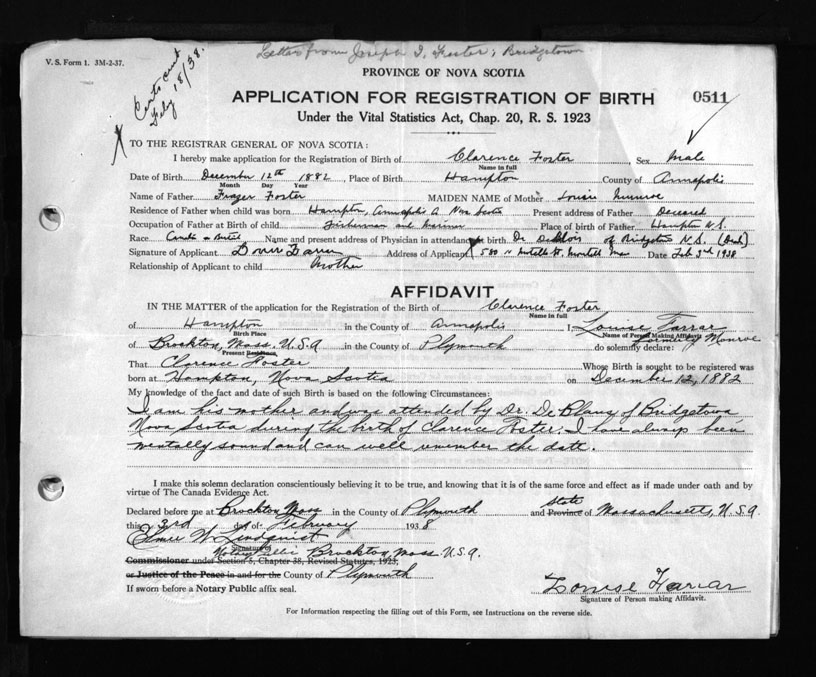 Letter from Joseph I. Foster, Bridgetown
V. S. Form 1. 3M-2-37.
PROVINCE OF NOVA SCOTIA
APPLICATION FOR REGISTRATION OF BIRTH 0511
Under the Vital Statistics Act, Chap. 20, R. S. 1923
TO THE REGISTRAR GENERAL OF NOVA SCOTIA:
I hereby make application for the Registration of Birth of Clarence Foster, Sex Male
Name in full
Date of Birth December 12th 1882, Place of Birth Hampton County of Annapolis
Month Day Year
Name of Father Frazer Foster MAIDEN NAME of Mother Louise Munroe
Residence of Father when child was born Hampton, Annapolis Nova Scotia Present address of Father Deceased
Occupation of Father at Birth of child Fisherman and Farmer Place of birth of Father Hampton N.S.
Race Name and present address of Physician in attendance at birth Dr DeBlois of Bridgetown N.S. (Dead)
Signature of Applicant Address of Applicant 580 N Date Feb 3rd 1938
Relationship of Applicant to child Mother
AFFIDAVIT
IN THE MATTER of the application for the Registration of the Birth of Clarence Foster
Name in full
of Hampton in the County of Annapolis I, Louise Farrar
Birth Place Name of Person Making Affidavit
formerly Monroe
of Brockton, Mass. U.S.A in the County of Plymouth do solemnly declare:
Present Residence,
That Clarence Foster Whose Birth is sought to be registered was
born at Hampton, Nova Scotia on December 12, 1882
My knowledge of the fact and date of such Birth is based on the following Circumstances:
I am his mother and was attended by Dr. De Blany of Bridgetown
Nova Scotia during the birth of Clarence Foster. I have always been
mentally sound and can well remember the date.
I make this solemn declaration conscientiously believing it to be true, and knowing that it is of the same force and effect as if made under oath and by
virtue of The Canada Evidence Act.
Declared before me at Brockton Mass in the County of Plymouth and Province State of Massachusetts, U.S.A.
this 3rd day of February 1938
Elmer W. Lindquist
Signature of
Notary Public Brockton, Mass. U.S.A.
Commissioner under Section 5, Chapter 38, Revised Statutes, 1923,
or Justice of the Peace in and for the County of Plymouth
If sworn before a Notary Public affix seal.
Louise Farrar
Signature of Person making Affidavit.
For Information respecting the filling out of this Form, see Instructions on the reverse side.